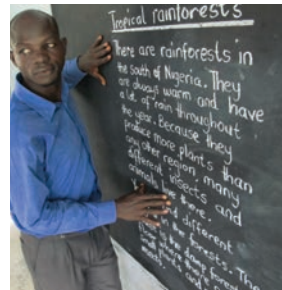 Tropical rainforests
There are rainforests in
the south of Nigeria. They
are always warm and have
a lot of rain throughout
the year. Because they
produce more plants than
any other region, many
different insects and
animals live there.
and different
in the forests. The
the deep forest
small plants and